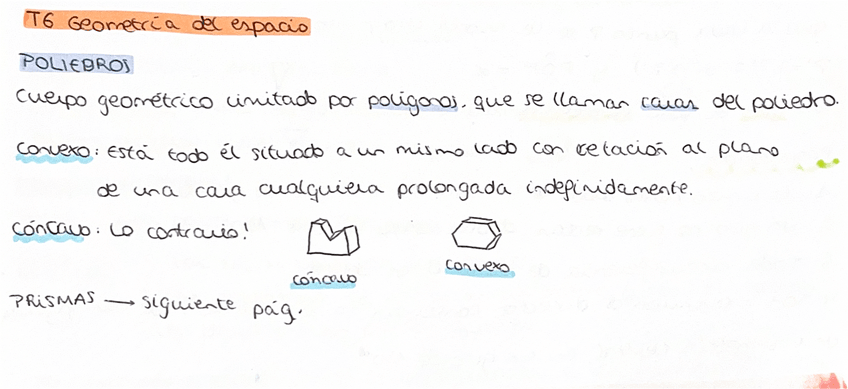 T6 Geometría del espacio
POLIEDROS
Cuerpo geométrico limitado por polígonos, que se llaman caras del poliedro.
Convexo: Está todo él situado a un mismo lado con relación al plano
de una cara cualquiera prolongada indefinidamente.
Cóncavo: Lo contrario!
cóncavo
convexo
PRISMAS → siguiente pág.